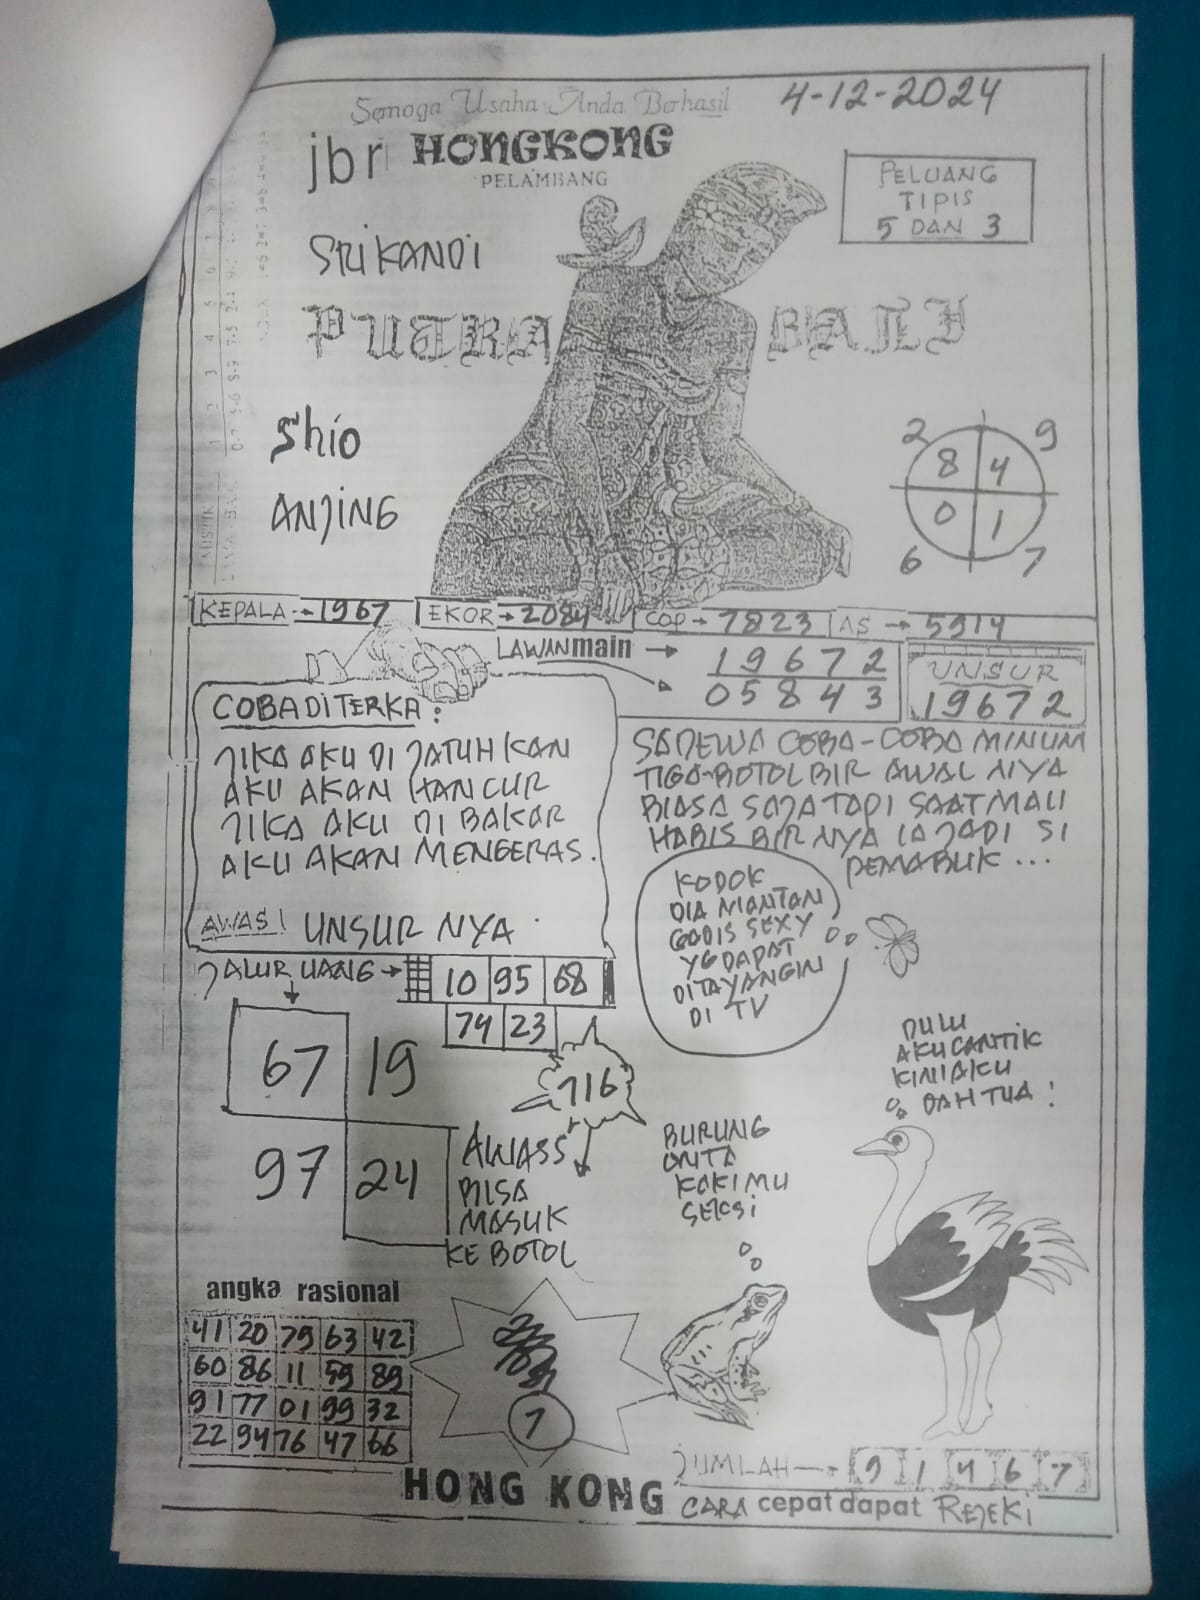 Semoga Usaha Anda Berhasil
4-12-2024
jbr HONGKONG
PELAMBANG
PELUANG
TIPIS
5 DAN 3
SRIKANDI
PUTRA BALI
Shio
ANJING
2 9
8 4
0 1
6 7
KEPALA → 1967 EKOR → 2084 COP → 7823 AS → 5914
LAWAN main → 19672
05843
UNSUR
19672
COBA DI TERKA :
JIKA AKU DI JATUHKAN
AKU AKAN HANCUR
JIKA AKU DI BAKAR
AKU AKAN MENGERAS.
AWAS! UNSUR NYA
SADEWA COBA-COBA MINUM
TIGA-BOTOL BIR AWAL NYA
BIASA SAJA TADI SAAT MAU
HABIS BIR NYA IA JADI SI
PEMABUK ...
KODOK
DIA MANTAN
GADIS SEXY
YG DAPAT
DITAYANGIN
DI TV
JALUR UANG → 10 95 68
74 23
67 19
97 24
716
AWASS
BISA
MASUK
KE BOTOL
DULU
AKU CANTIK
KINI AKU
DAH TUA !
BURUNG
ONTA
KAKIMU
SEKSI
angka rasional
41 20 79 63 42
60 86 11 59 89
91 77 01 99 32
22 94 76 47 66
7
JUMLAH → 9 1 4 6 7
HONG KONG
CARA cepat dapat REJEKI